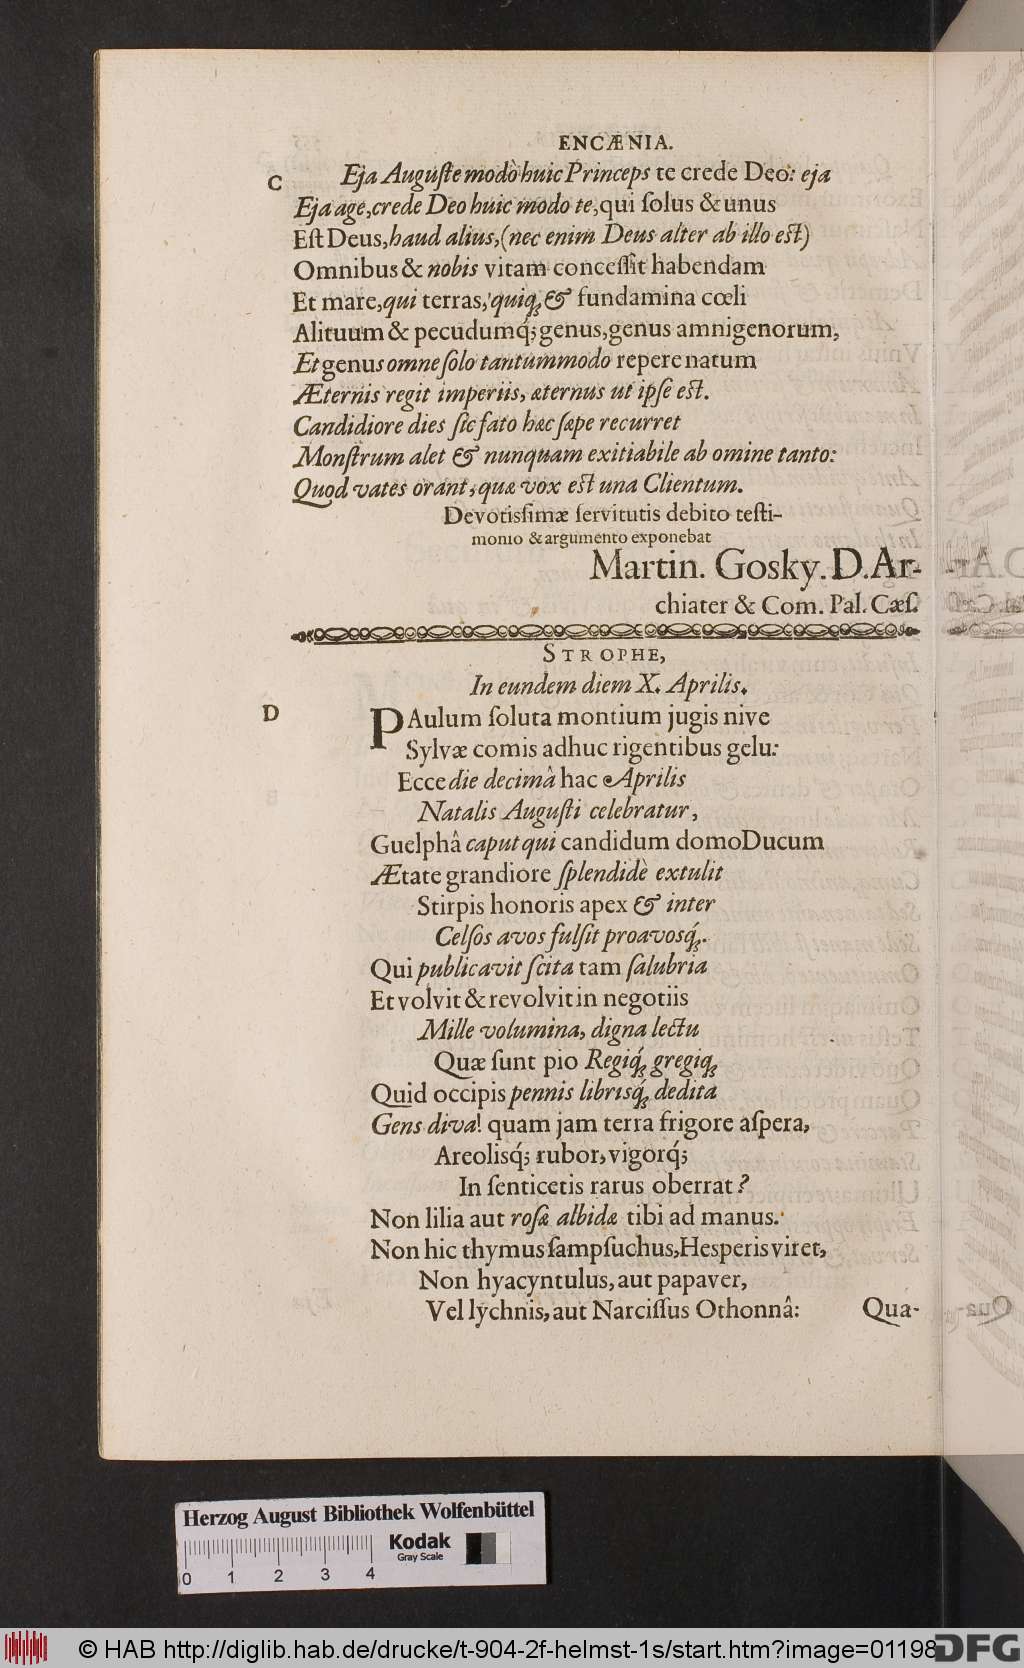 ENCÆNIA.
C
Eja Auguſte modò huic Princeps te crede Deo: eja
Eja age, crede Deo huic modo te, qui ſolus & unus
Eſt Deus, haud alius, (nec enim Deus alter ab illo eſt)
Omnibus & nobis vitam conceſſit habendam
Et mare, qui terras, quiq́; & fundamina cœli
Alituum & pecudumq́; genus, genus amnigenorum,
Et genus omne ſolo tantummodo repere natum
Æternis regit imperiis, æternus ut ipſe eſt.
Candidiore dies ſic fato hæc ſæpe recurret
Monſtrum alet & nunquam exitiabile ab omine tanto:
Quod vates orant, quæ vox eſt una Clientum.
Devotisſimæ ſervitutis debito teſti-
monio & argumento exponebat
Martin. Gosky. D. Ar-
chiater & Com. Pal. Cæſ.
STROPHE,
In eundem diem X. Aprilis.
D
PAulum ſoluta montium jugis nive
Sylvæ comis adhuc rigentibus gelu:
Ecce die decimâ hac Aprilis
Natalis Auguſti celebratur,
Guelphâ caput qui candidum domo Ducum
Ætate grandiore ſplendidè extulit
Stirpis honoris apex & inter
Celſos avos fulſit proavosq́;.
Qui publicavit ſcita tam ſalubria
Et volvit & revolvit in negotiis
Mille volumina, digna lectu
Quæ ſunt pio Regiq́; gregiq;
Quid occipis pennis librisq́; dedita
Gens diva! quam jam terra frigore aſpera,
Areolisq́; rubor, vigorq́;
In ſenticetis rarus oberrat?
Non lilia aut roſæ albidæ tibi ad manus.
Non hic thymus ſampſuchus, Hesperis viret,
Non hyacyntulus, aut papaver,
Vel lychnis, aut Narciſſus Othonnâ:
Qua-
Herzog August Bibliothek Wolfenbüttel
Kodak
Gray Scale
0 1 2 3 4
© HAB http://diglib.hab.de/drucke/t-904-2f-helmst-1s/start.htm?image=01198
DFG